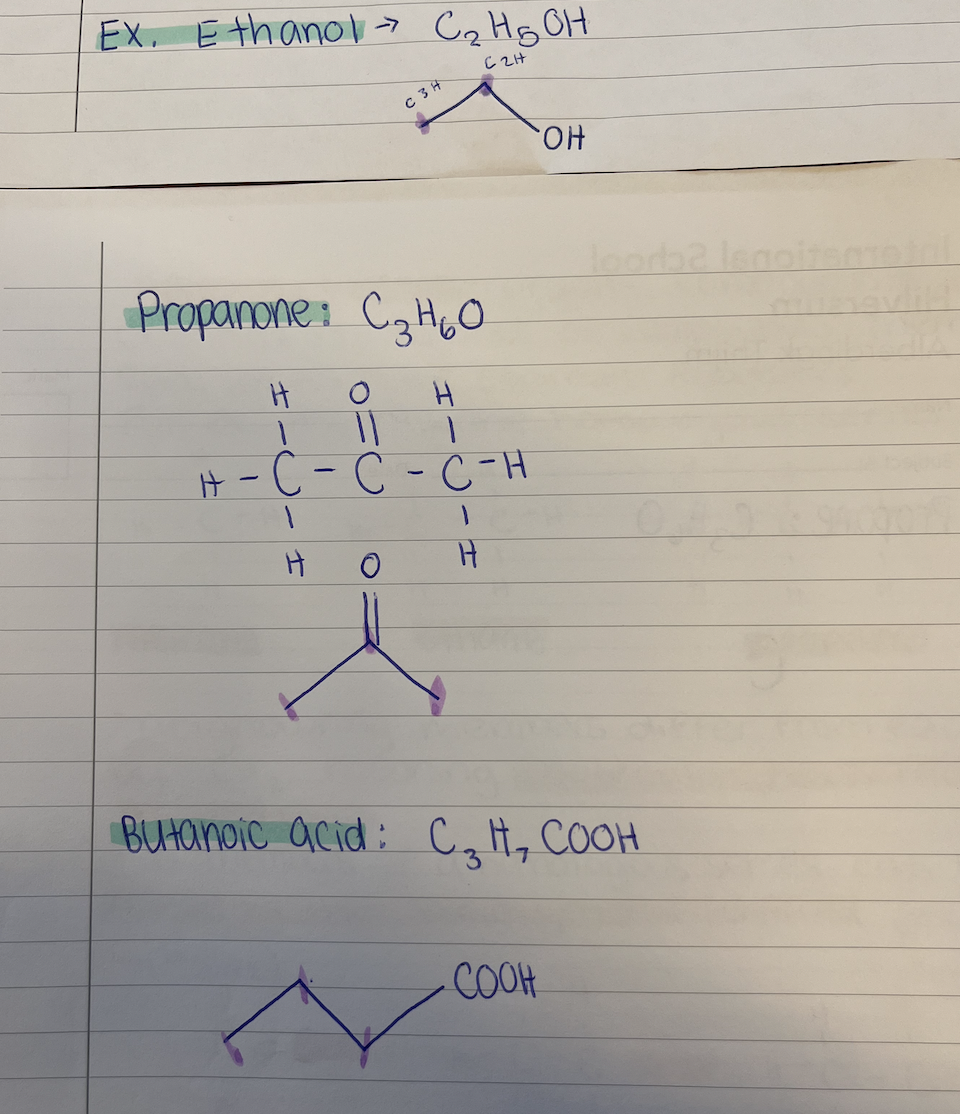 EX. Ethanol → C₂H₅OH
C3H C2H
OH
Propanone: C₃H₆O
H O H
H - C - C - C - H
H O H
Butanoic acid: C₃H₇COOH
COOH